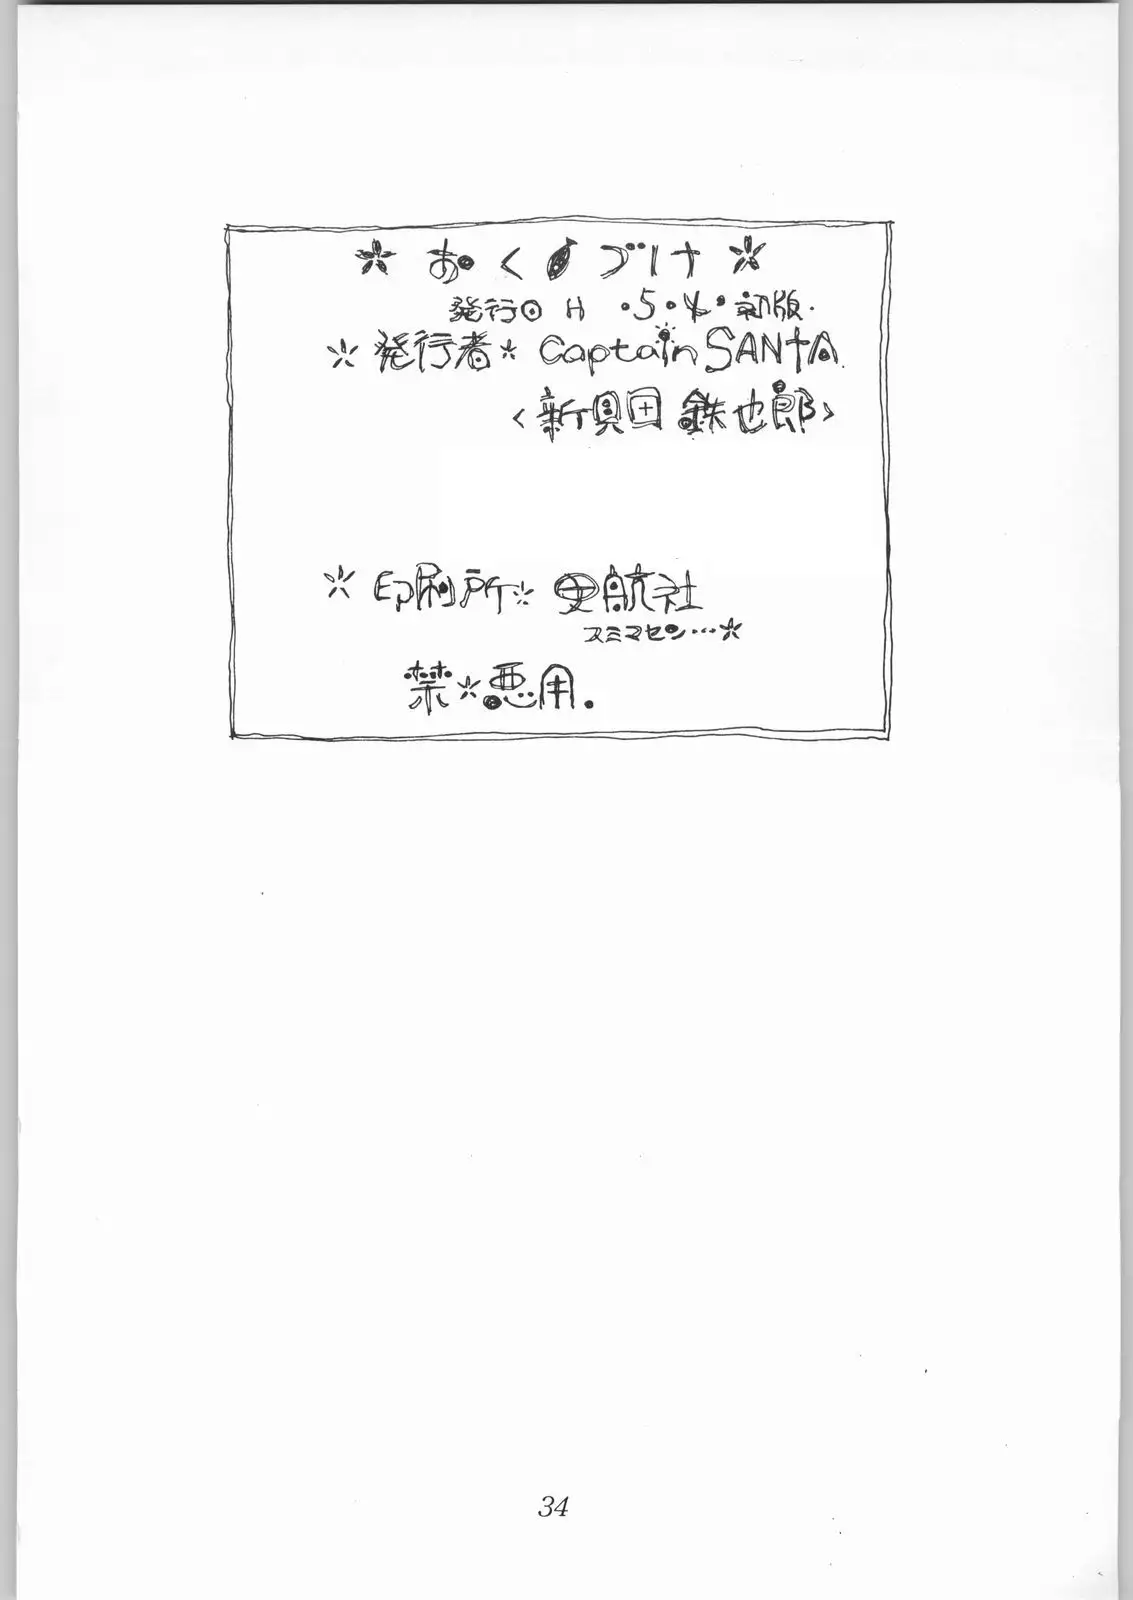 ＊ おくづけ ＊
発行日 H・5・4・初版.
＊ 発行者＊ Captain SANTA.
<新貝田 鉄也郎>
＊ 印刷所＊ 曳航社
スミマセン…☆
禁☆悪用.
34